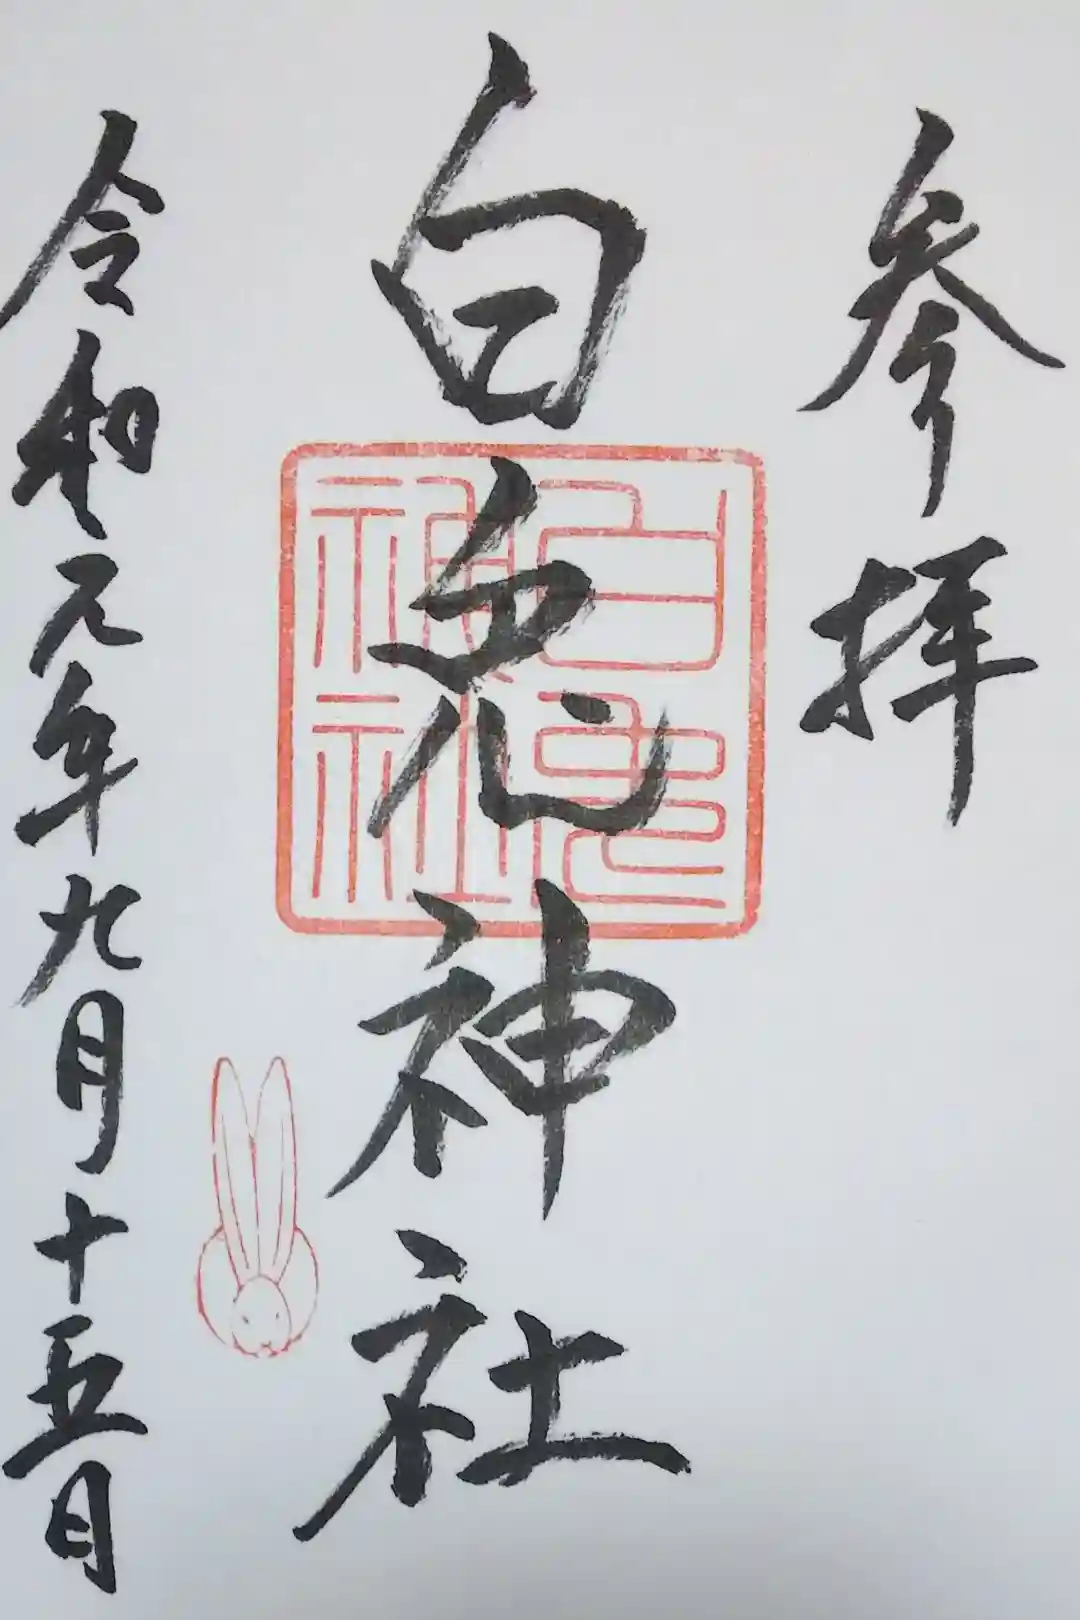 参拝
白兎神社
白兎
神社
令和元年九月十五日